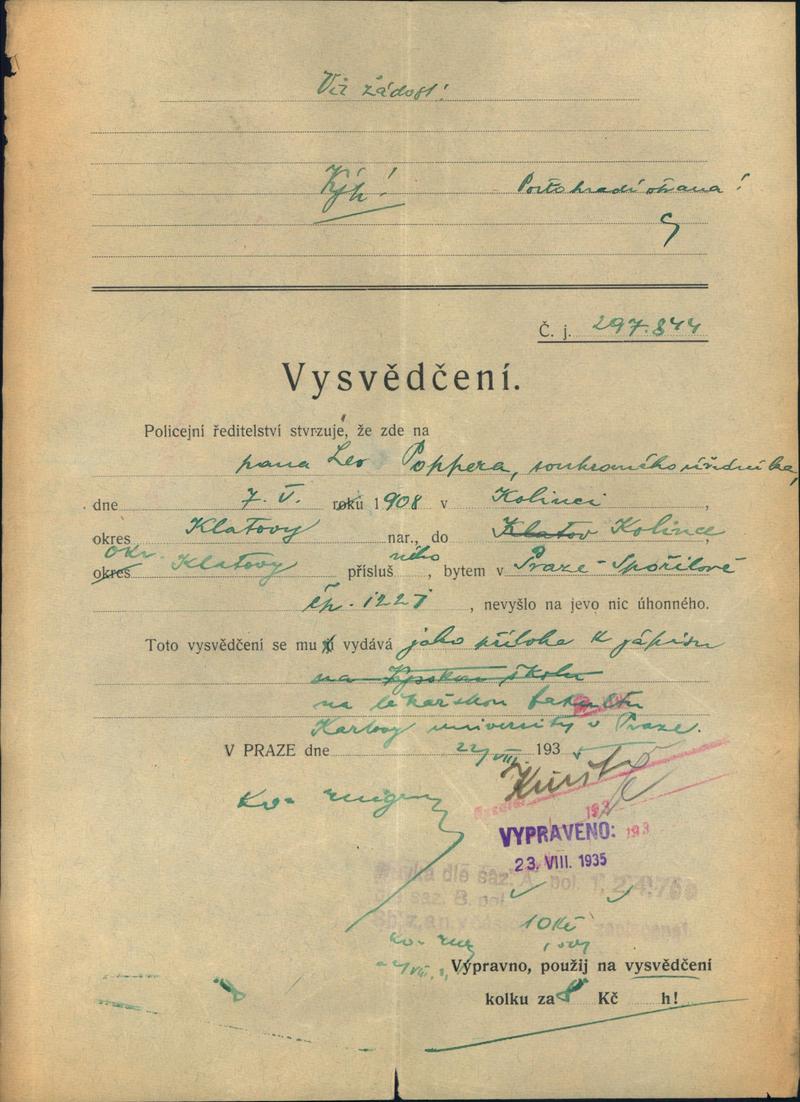 Viz žádost!
Porto hradí strana!
Č. j. 297.844
Vysvědčení.
Policejní ředitelství stvrzuje, že zde na
pana Leo Poppera, soukromého úředníka,
dne 7. V. roku 1908 v Kolinci,
okres Klatovy nar., do Klatov Kolince,
okres okr. Klatovy přísluš ného, bytem v Praze-Spořilově
čp. 1227, nevyšlo na jevo nic úhonného.
Toto vysvědčení se mu vydává jako příloha k zápisu
na školu
na lékařskou fakultu
Karlovy university v Praze.
V PRAZE dne 22/VIII. 1935
193
193
VYPRAVENO:
23. VIII. 1935
dle saz. A. pol. 1, 2
dle saz. B. pol.
10 Kč
Výpravno, použij na vysvědčení
kolku za 8 Kč h!